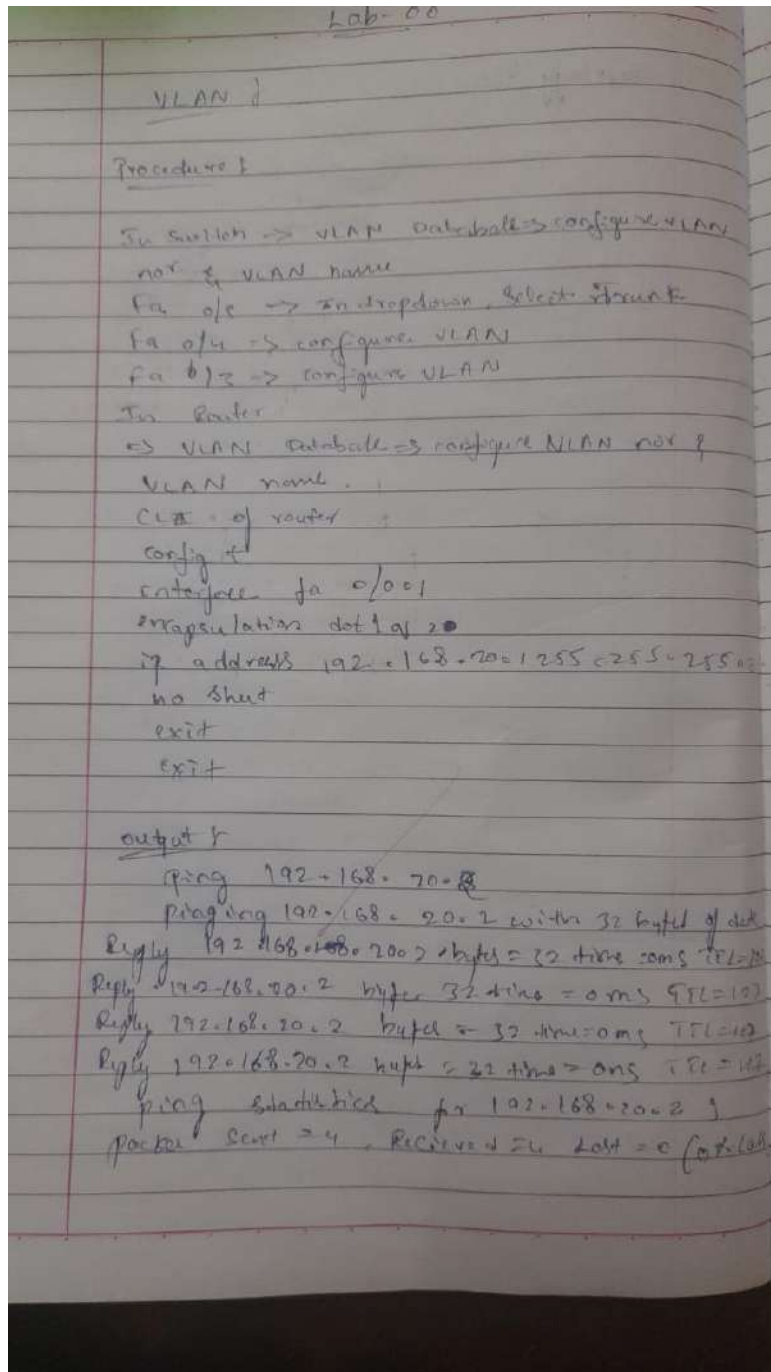 Lab-00
VLAN :
Procedure :
In Switch -> VLAN Database => configure VLAN
nor & VLAN name
fa 0/5 -> In dropdown, Select trunk
fa 0/4 -> configure VLAN
fa 0/3 -> configure VLAN
In Router
=> VLAN Database => configure VLAN nor &
VLAN name.
CLI of router
config t
interface fa 0/0.1
encapsulation dot1q 20
ip address 192.168.20.1 255.255.255.
no shut
exit
exit
output :
ping 192.168.20.2
pinging 192.168.20.2 with 32 bytes of data
Reply 192.168.20.2 bytes = 32 time = 0ms TTL=
Reply 192.168.20.2 bytes 32 time = 0 ms TTL=127
Reply 192.168.20.2 bytes = 32 time=0ms TTL=127
Reply 192.168.20.2 bytes = 32 time = 0ms TTL=127
ping statistics for 192.168.20.2
packet Sent = 4, Recieved = 4 Lost = 0 (0%